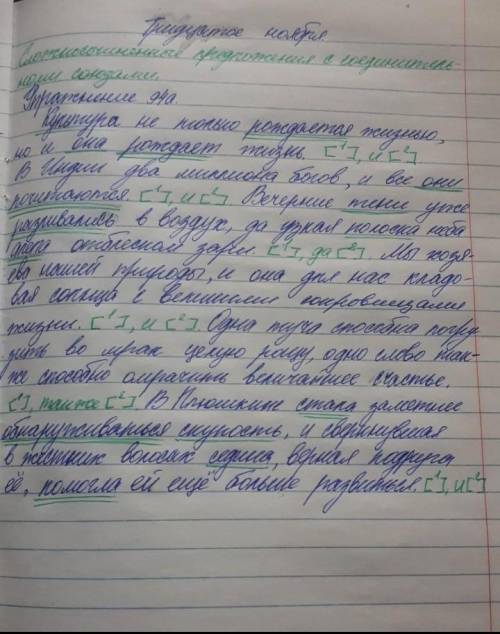 Тридцатое ноября.
Сложносочинённые предложения с соединитель-
ными союзами.
Упражнение 94а.
Культура не только рождается жизнью,
но и она рождает жизнь. [¹], и [²]
В Индии два миллиона богов, и все они
почитаются. [¹], и [²]. Вечерние тени уже
разливались в воздух, да узкая полоска неба
алела отблеском зари. [¹], да [²]. Мы хозя-
ева нашей природы, и она для нас кладо-
вая солнца с великими сокровищами
жизни. [¹], и [²]. Одна туча способна погру-
зить во мрак целую рощу, одно слово так-
же способно омрачить величайшее счастье.
[¹], также [²]. В Плюшкине стала заметнее
обнаруживаться скупость, и сверкнувшая
в жёстких волосах седина, верная подруга
её, помогла ей ещё больше развиться. [¹], и [²]